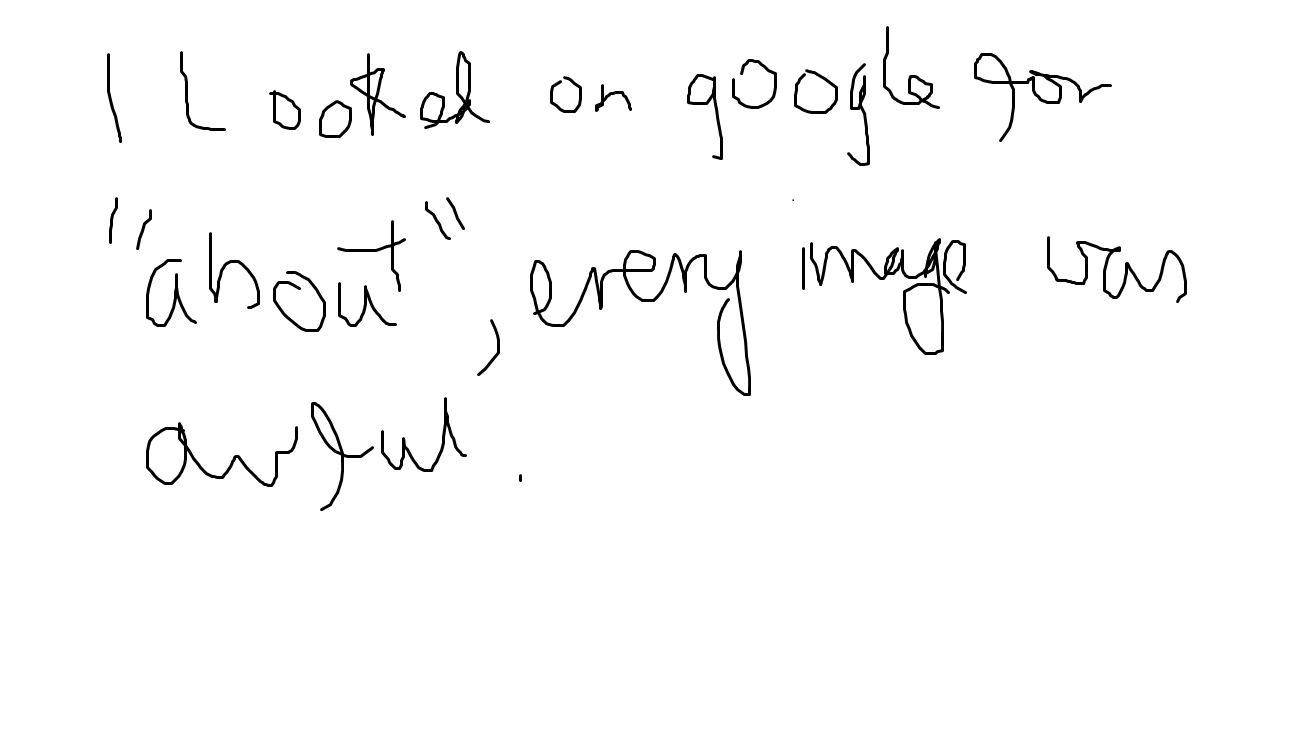 I Looked on google for
"about", every image was
awful.